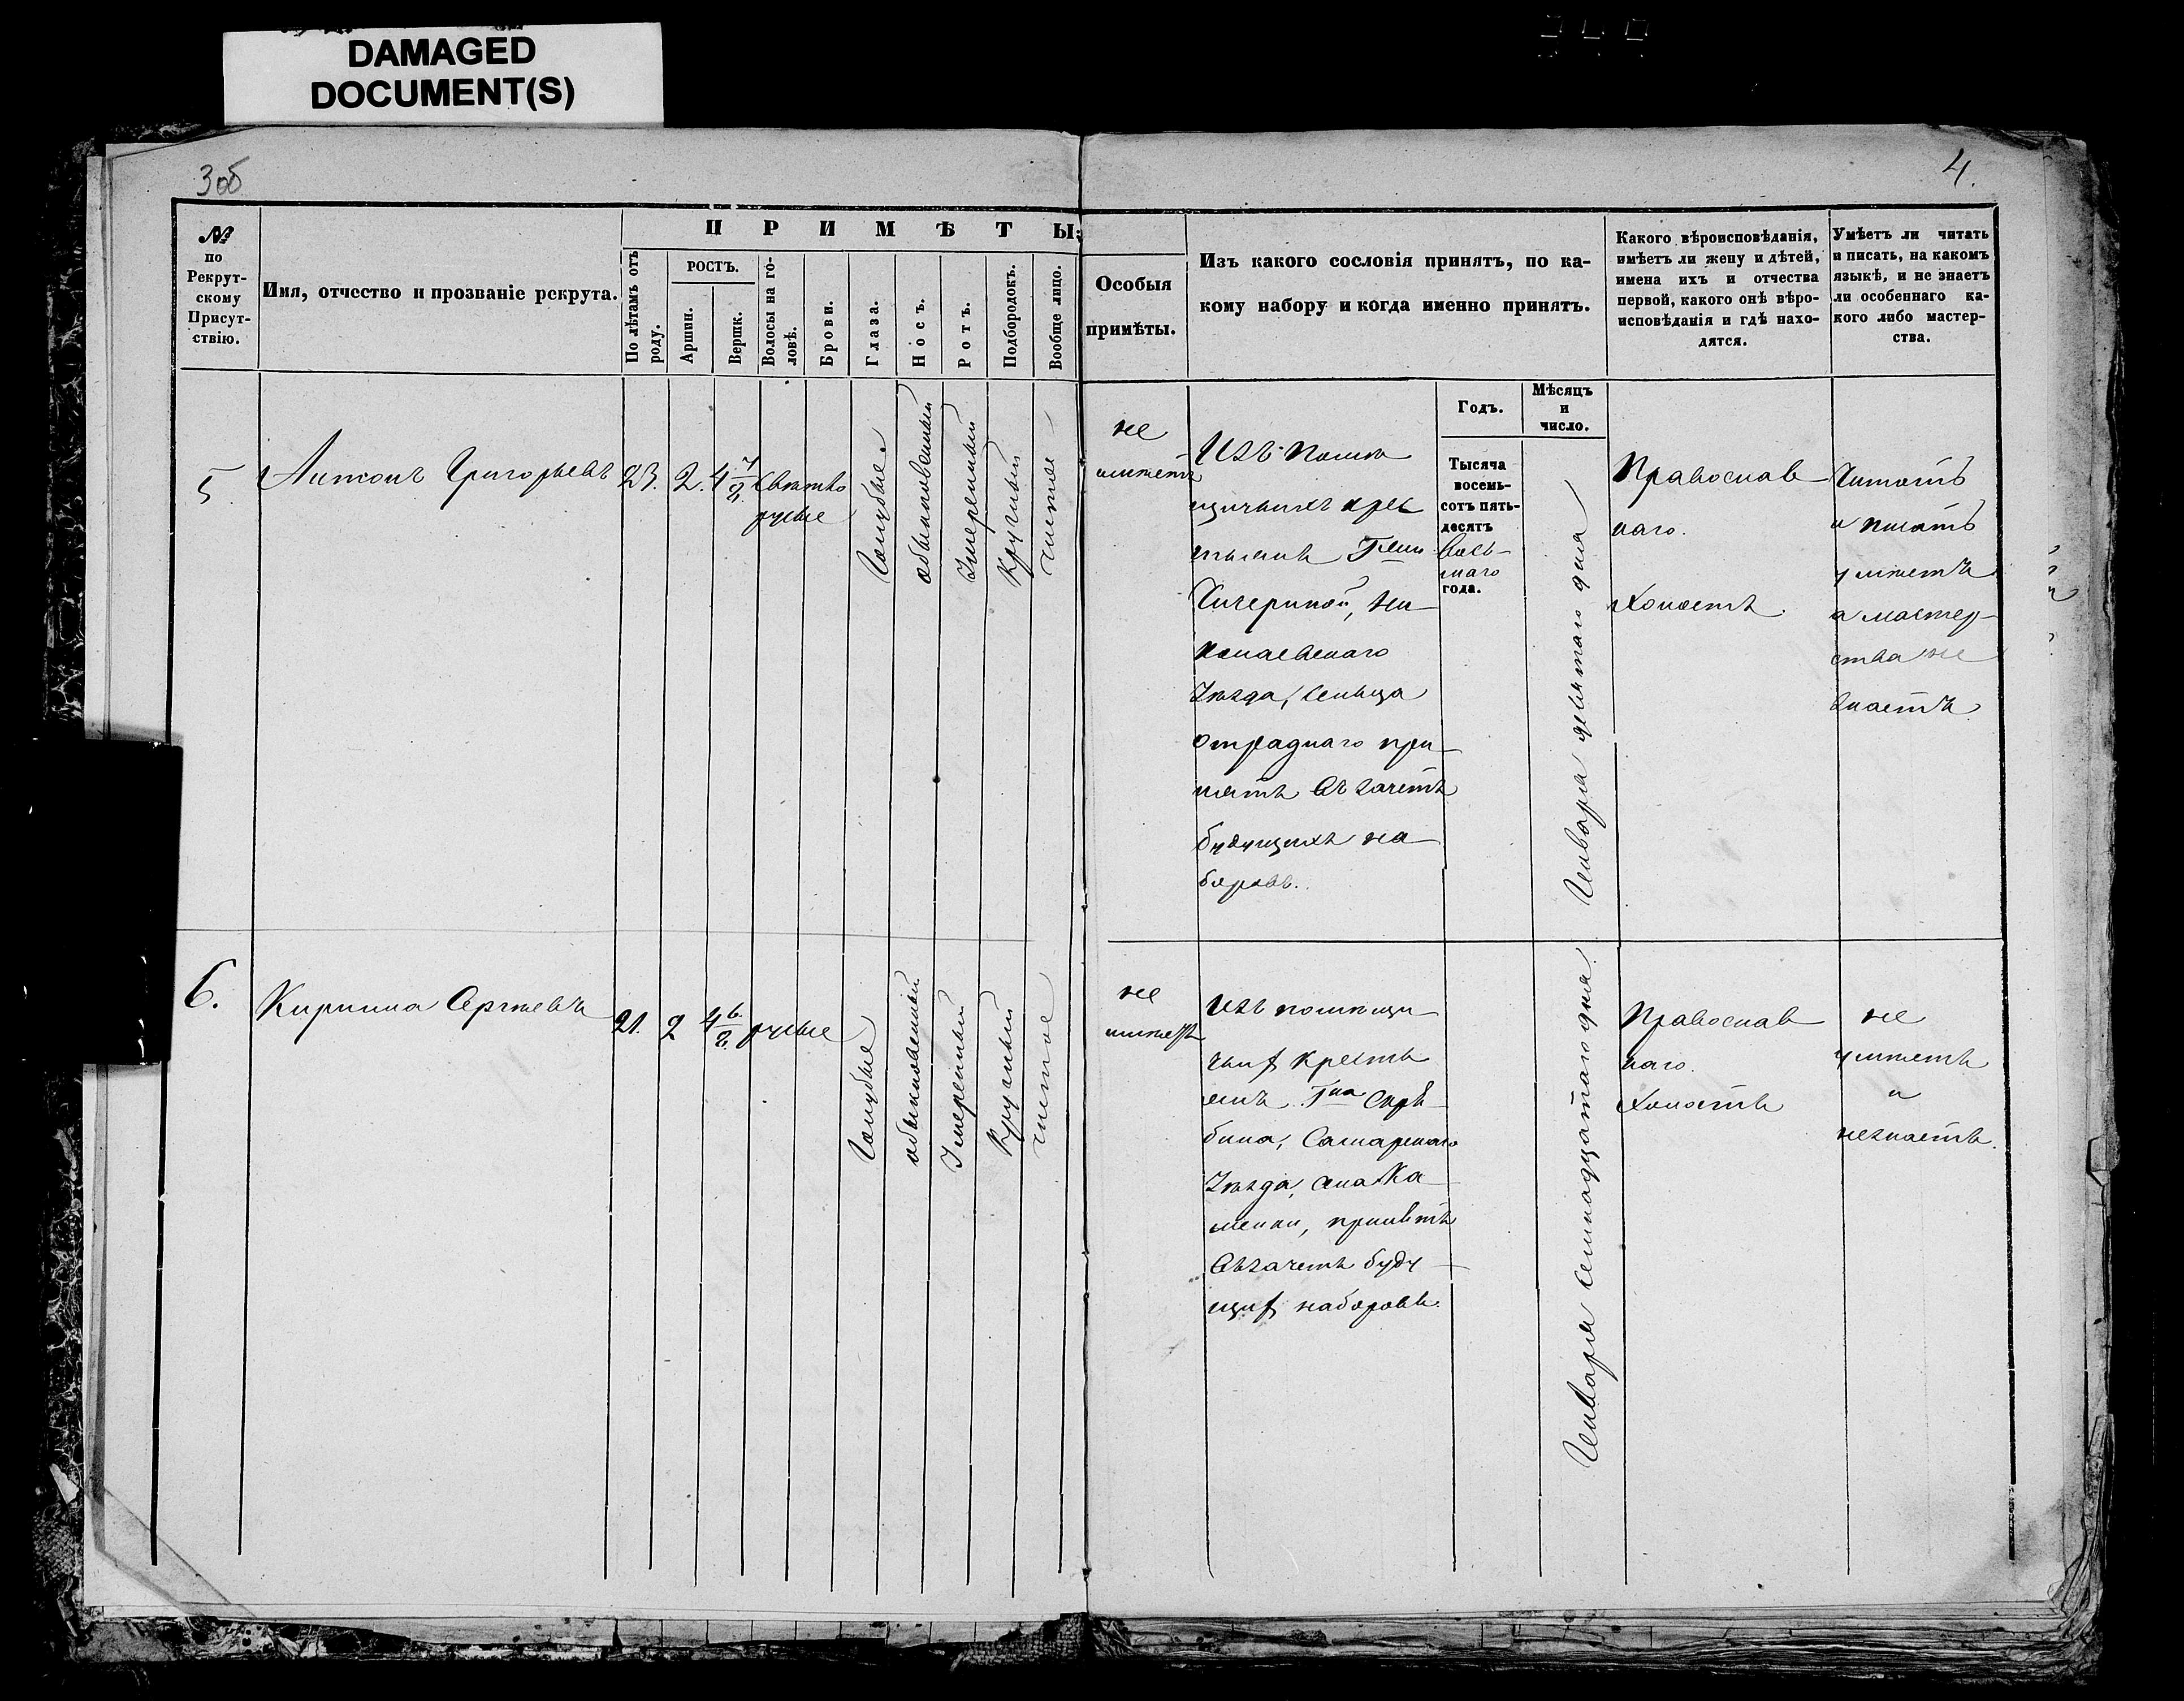 DAMAGED
DOCUMENT(S)
3об
4.
№
по
Рекрут-
скому
Присут-
ствію.
Имя, отчество и прозваніе рекрута.
ПРИМѢТЫ:
По лѣтамъ отъ
роду.
РОСТЪ.
Аршин.
Вершк.
Волосы на го-
ловѣ.
Брови.
Глаза.
Носъ.
Ротъ.
Подбородокъ.
Вообще лицо.
Особыя
примѣты.
Изъ какого сословія принятъ, по ка-
кому набору и когда именно принятъ.
Какого вѣроисповѣданія,
имѣетъ ли жену и дѣтей,
имена ихъ и отчества
первой, какого онѣ вѣро-
исповѣданія и гдѣ нахо-
дятся.
Умѣетъ ли читать
и писать, на какомъ
языкѣ, и не знаетъ
ли особеннаго ка-
кого либо мастер-
ства.
5
Антонъ Григорьевъ
23.
2.
4 7/8
Свѣтло
русые
Голубые
обыкновенный
Умеренный
Круглый
чистое
не
имѣетъ
Изъ помѣ
щичьихъ кре
стьянъ Гжи
Чичериной, Ни
колаевскаго
Уѣзда, сельца
Отраднаго при
нятъ въ зачетъ
будущихъ на
боровъ.
Годъ.
Тысяча
восемь-
сотъ пять-
десятъ
Вось-
маго
года.
Мѣсяцъ
и
число.
Генваря девятаго дня
Православ
наго.
Холостъ.
Читать
и писать
умѣетъ
а мастер-
ства не
знаетъ.
6.
Кирила Сергѣевъ
21.
2
4 6/8
русые
Голубые
обыкновенный
Умеренный
Круглый
чистое
не
имѣетъ
Изъ помѣщи
чьих крестья
янъ Гна Скря
бина, Самарскаго
Уѣзда, села Ка
менки, принятъ
въ зачетъ буду
щих наборовъ.
Генваря семнадцатаго дня.
Православ
наго.
Холостъ
не
умѣетъ
и
незнаетъ.